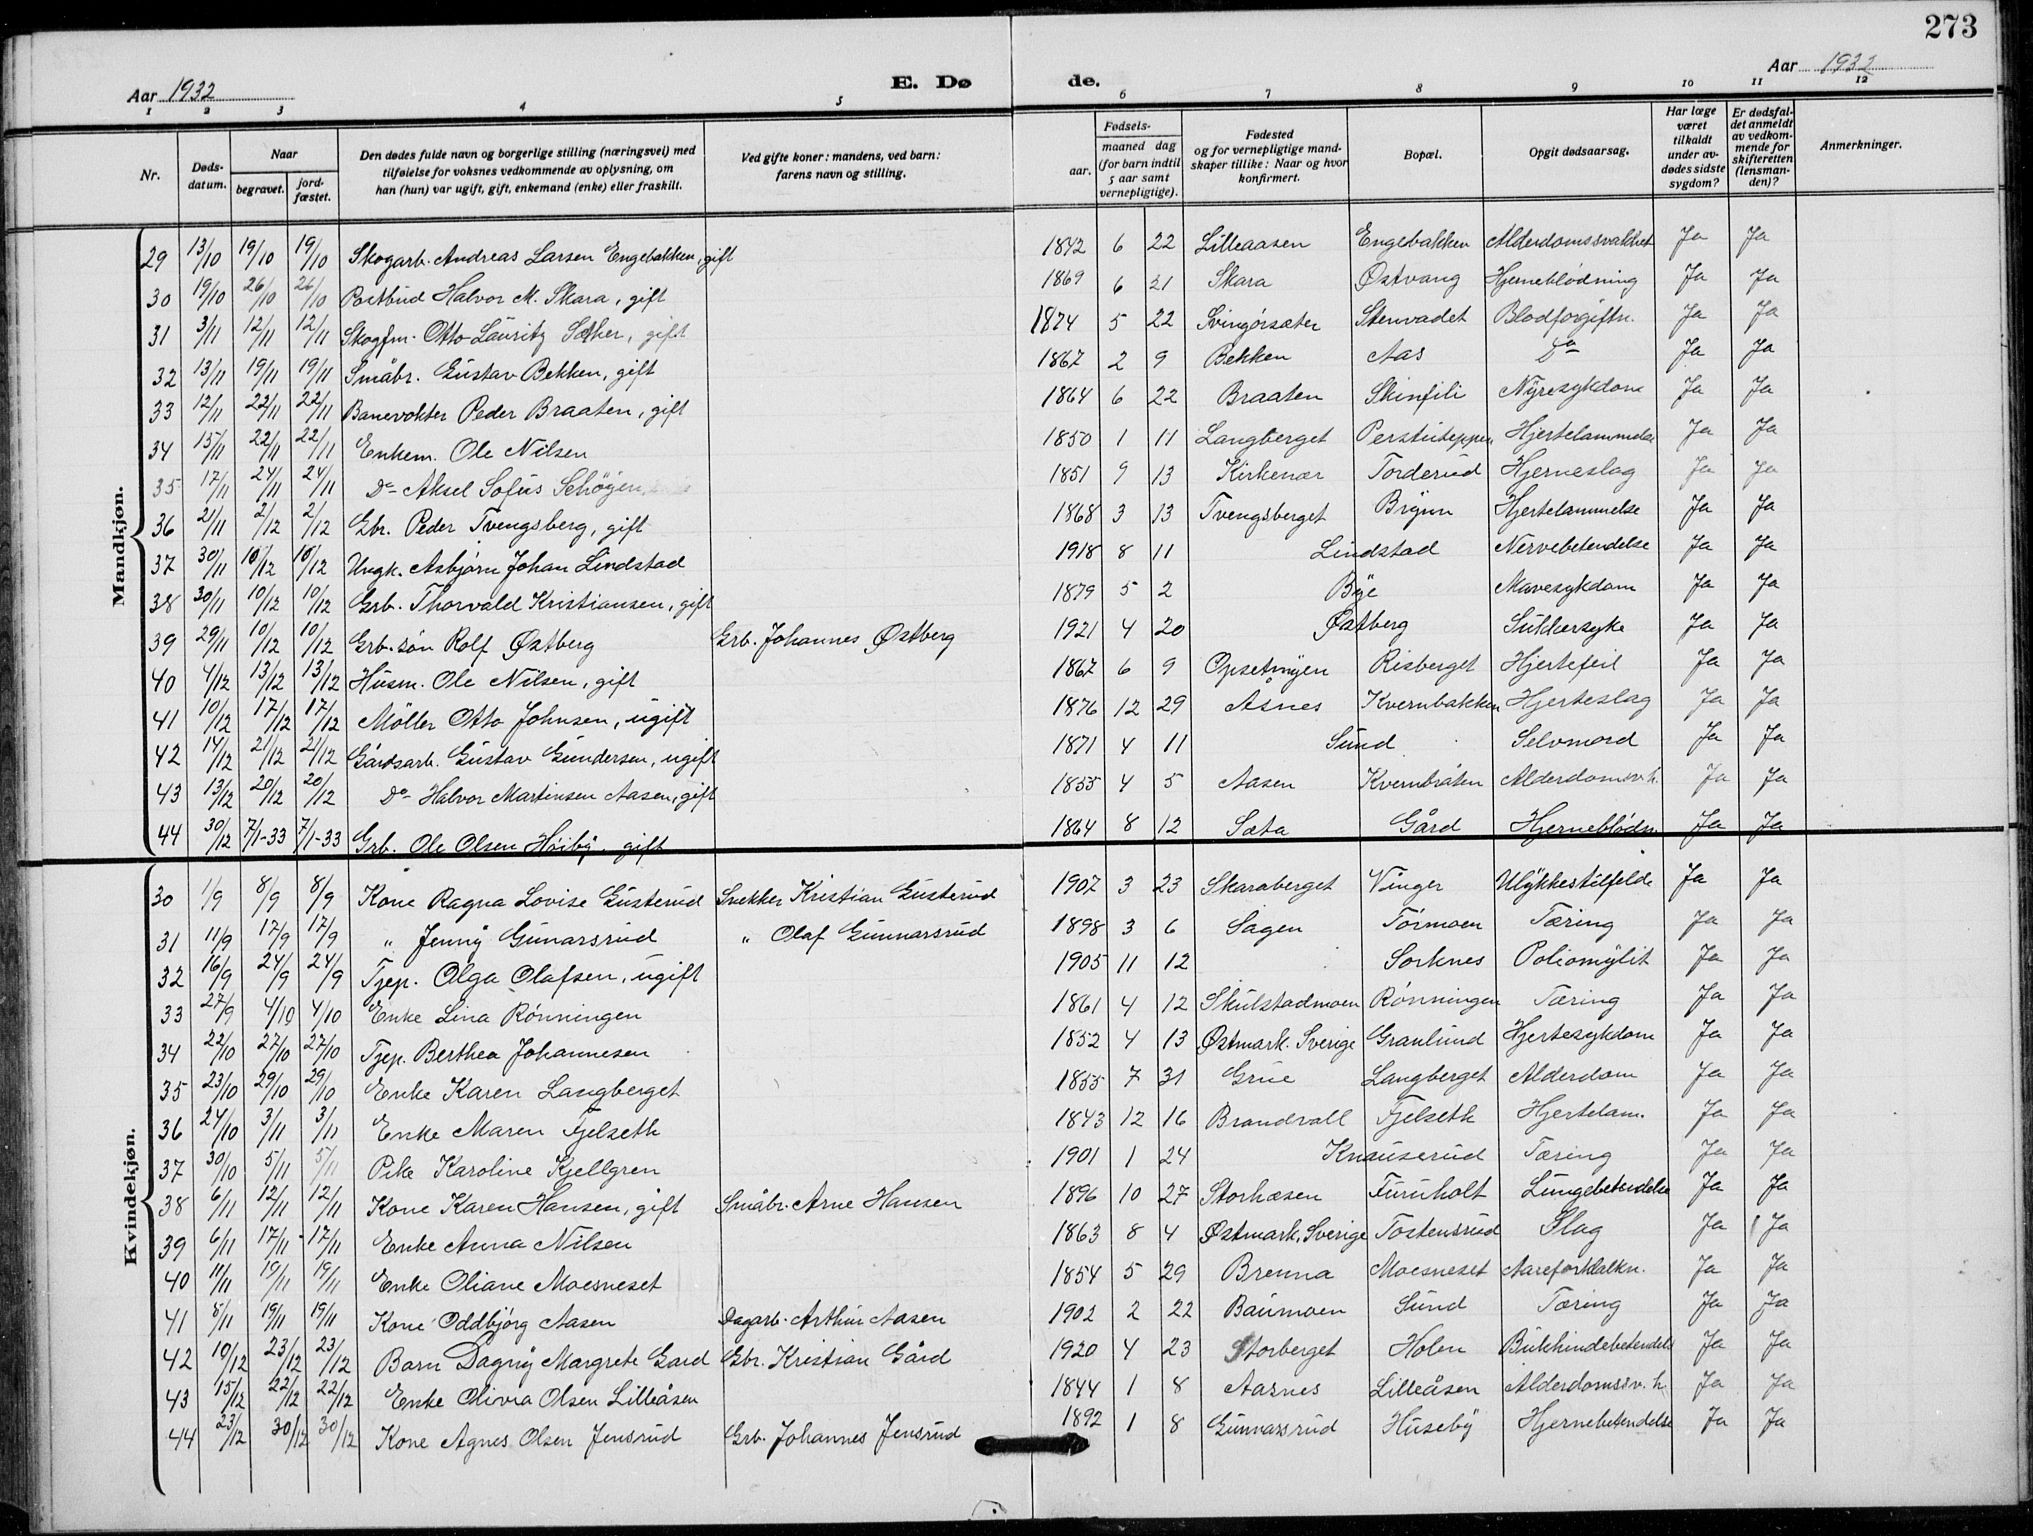 273
Aar 1932
E. Dø
de.
Aar 1932
1 2 3 4 5 6 7 8 9 10 11 12
Nr. Døds-datum. Naar begravet. jord-fæstet. Den dødes fulde navn og borgerlige stilling (næringsvei) med tilføielse for voksnes vedkommende av oplysning, om han (hun) var ugift, gift, enkemand (enke) eller fraskilt. Ved gifte koner: mandens, ved barn: farens navn og stilling. Fødsels- aar. maaned dag (for barn indtil 5 aar samt vernepligtige). Fødested og for vernepligtige mand-skaper tillike: Naar og hvor konfirmert. Bopæl. Opgit dødsaarsag. Har læge været tilkaldt under av-dødes sidste sygdom? Er dødsfal-det anmeldt av vedkom-mende for skifteretten (lensman-den)? Anmerkninger.
Mandkjøn.
29 13/10 19/10 19/10 Skogarb. Andreas Larsen Engebakken, gift 1842 6 22 Lilleaasen Engebakken Alderdomssvakhet Ja Ja
30 19/10 26/10 26/10 Postbud Halvor M. Skara, gift 1869 6 21 Skara Østvang Hjerneblödning Ja Ja
31 3/11 12/11 12/11 Skogfm. Otto Lauritz Sæther, gift 1874 5 22 Svingörsæter Stenvadet Blodforgiftn. Ja Ja
32 13/11 19/11 19/11 Småbr. Gustav Bekken, gift 1867 2 9 Bekken Aas Do Ja Ja
33 12/11 22/11 22/11 Banevokter Peder Braaten, gift 1864 6 22 Braaten Skinfili Nyresykdom Ja Ja
34 15/11 22/11 22/11 Enkem. Ole Nilsen 1850 1 11 Langberget Perstuteppen Hjertelammelse Ja Ja
35 17/11 24/11 24/11 Do Aksel Sofus Schögen 1851 9 13 Kirkenær Torderud Hjerneslag Ja Ja
36 21/11 2/12 2/12 Gbr. Peder Tvengsberg, gift 1868 3 13 Tvengsberget Brynn Hjertelammelse Ja Ja
37 30/11 10/12 10/12 Ungk. Asbjørn Johan Lindstad 1918 8 11 Lindstad Nervebetendelse Ja Ja
38 30/11 10/12 10/12 Grb. Thorvald Kristiansen, gift 1879 5 2 Bye Mavesykdom Ja Ja
39 29/11 10/12 10/12 Grb. sön Rolf Østberg Grb. Johannes Østberg 1921 4 20 Østberg Sukkersyke Ja Ja
40 4/12 13/12 13/12 Husm. Ole Nilsen, gift 1867 6 9 Opsetmyen Risberget Hjertefeil Ja Ja
41 10/12 17/12 17/12 Möller Otto Johnsen, ugift 1876 12 29 Åsnes Kvernbakken Hjerteslag Ja Ja
42 14/12 21/12 21/12 Gårdsarb. Gustav Gundersen, ugift 1871 4 11 Sund Selvmord Ja Ja
43 13/12 20/12 20/12 Do Halvor Martinsen Aasen, gift 1855 4 5 Aasen Kvernbråten Alderdomsv.h. Ja Ja
44 30/12 7/1-33 7/1-33 Grb. Ole Olsen Höiby, gift 1864 8 12 Sæta Gård Hjerneblödn. Ja Ja
Kvindekjøn.
30 1/9 8/9 8/9 Kone Ragna Lovise Gusterud Snekker Kristian Gusterud 1907 3 23 Skaraberget Vinger Ulykkestilfelde Ja Ja
31 11/9 17/9 17/9 " Jenny Gunarsrud " Olaf Gunnarsrud 1898 3 6 Sagen Törmoen Tæring Ja Ja
32 16/9 24/9 24/9 Tjep. Olga Olafsen, ugift 1905 11 12 Sorknes Poliomylit Ja Ja
33 27/9 4/10 4/10 Enke Lina Rönningen 1861 4 12 Skulstadmoen Rönningen Tæring Ja Ja
34 22/10 27/10 27/10 Tjep. Berthea Johannesen 1852 4 13 Østmark. Sverige Granlund Hjertesykdom Ja Ja
35 23/10 29/10 29/10 Enke Karen Langberget 1855 7 31 Grue Langberget Alderdom Ja Ja
36 24/10 3/11 3/11 Enke Maren Fjelseth 1843 12 16 Brandvall Fjelseth Hjertelam. Ja Ja
37 30/10 5/11 5/11 Pike Karoline Kjellgren 1901 1 24 Knauserud Tæring Ja Ja
38 6/11 12/11 12/11 Kone Karen Hansen, gift Småbr. Arne Hansen 1896 10 27 Storhæsen Furuholt Lungebetendelse Ja Ja
39 6/11 17/11 17/11 Enke Anna Nilsen 1863 8 4 Østmark, Sverige Tostensrud Slag Ja Ja
40 11/11 19/11 19/11 Enke Oliane Moesneset 1854 5 29 Brenna Moesneset Aareforkalkn. Ja Ja
41 8/11 19/11 19/11 Kone Oddbjörg Aasen Dagarb. Arthur Aasen 1902 2 22 Baumoen Sund Tæring Ja Ja
42 10/12 23/12 23/12 Barn Dagny Margrete Gard Gbr. Kristian Gård 1920 4 23 Storberget Holen Bukhindebetendels Ja Ja
43 15/12 22/12 22/12 Enke Olivia Olsen Lilleåsen 1844 1 8 Aasnes Lilleåsen Alderdomssv.h. Ja Ja
44 23/12 30/12 30/12 Kone Agnes Olsen Jensrud Grb. Johannes Jensrud 1892 1 8 Gunnarsrud Huseby Hjernebetendelse Ja Ja